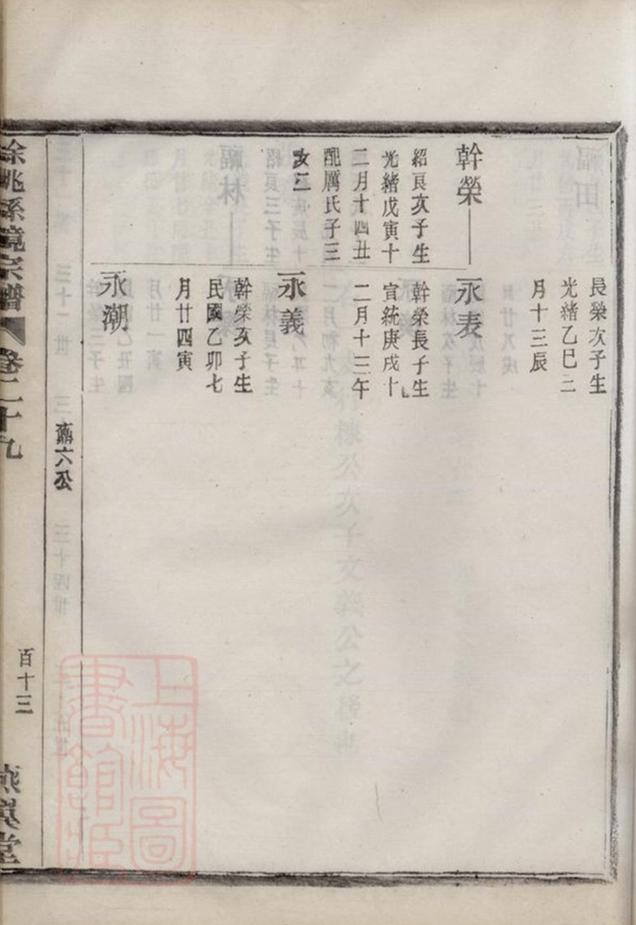 長榮次子生
光緒乙巳二
月十三辰
幹榮
紹良次子生
光緒戊寅十
二月十四丑
配厲氏子三
女二
永表
幹榮長子生
宣統庚戌十
二月十三午
永義
幹榮次子生
民國乙卯七
月廿四寅
永潮
六公
百十三
餘姚孫境宗譜
卷二十九
燕翼堂
上海圖
書館藏